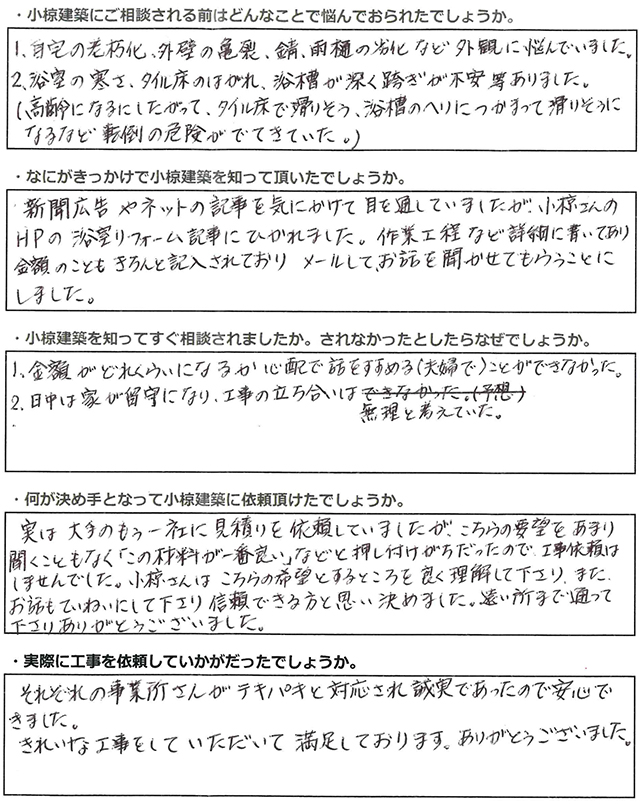 ・小椋建築にご相談される前はどんなことで悩んでおられたでしょうか。
1、自宅の老朽化、外壁の亀裂、錆、雨樋の劣化など外観に悩んでいました。
2、浴室の寒さ、タイル床のはがれ、浴槽が深く跨ぎが不安等ありました。
(高齢になるにしたがって、タイル床で滑りそう、浴槽のヘリにつかまって滑りそうに
なるなど転倒の危険がでてきていた。)
・なにがきっかけで小椋建築を知って頂いたでしょうか。
新聞広告やネットの記事を気にかけて目を通していましたが、小椋さんの
HPの浴室リフォーム記事にひかれました。作業工程など詳細に書いてあり
金額のこともきちんと記入されており メールして、お話を聞かせてもらうことに
しました。
・小椋建築を知ってすぐ相談されましたか。されなかったとしたらなぜでしょうか。
1、金額がどれくらいになるか心配で話をすすめる(夫婦で)ことができなかった。
2、日中は家が留守になり、工事の立ち合いはできなかった。(予想)
無理と考えていた。
・何が決め手となって小椋建築に依頼頂けたでしょうか。
実は大手のもう一社に見積りを依頼していましたが、こちらの要望をあまり
聞くこともなく「この材料が一番良い」などと押し付けがちだったので、工事依頼は
しませんでした。小椋さんはこちらの希望とするところを良く理解して下さり、また
お話もていねいにして下さり信頼できる方と思い決めました。遠い所まで通って
下さりありがとうございました。
・実際に工事を依頼していかがだったでしょうか。
それぞれの事業所さんがテキパキと対応され誠実であったので安心で
きました。
きれいな工事をしていただいて満足しております。ありがとうございました。